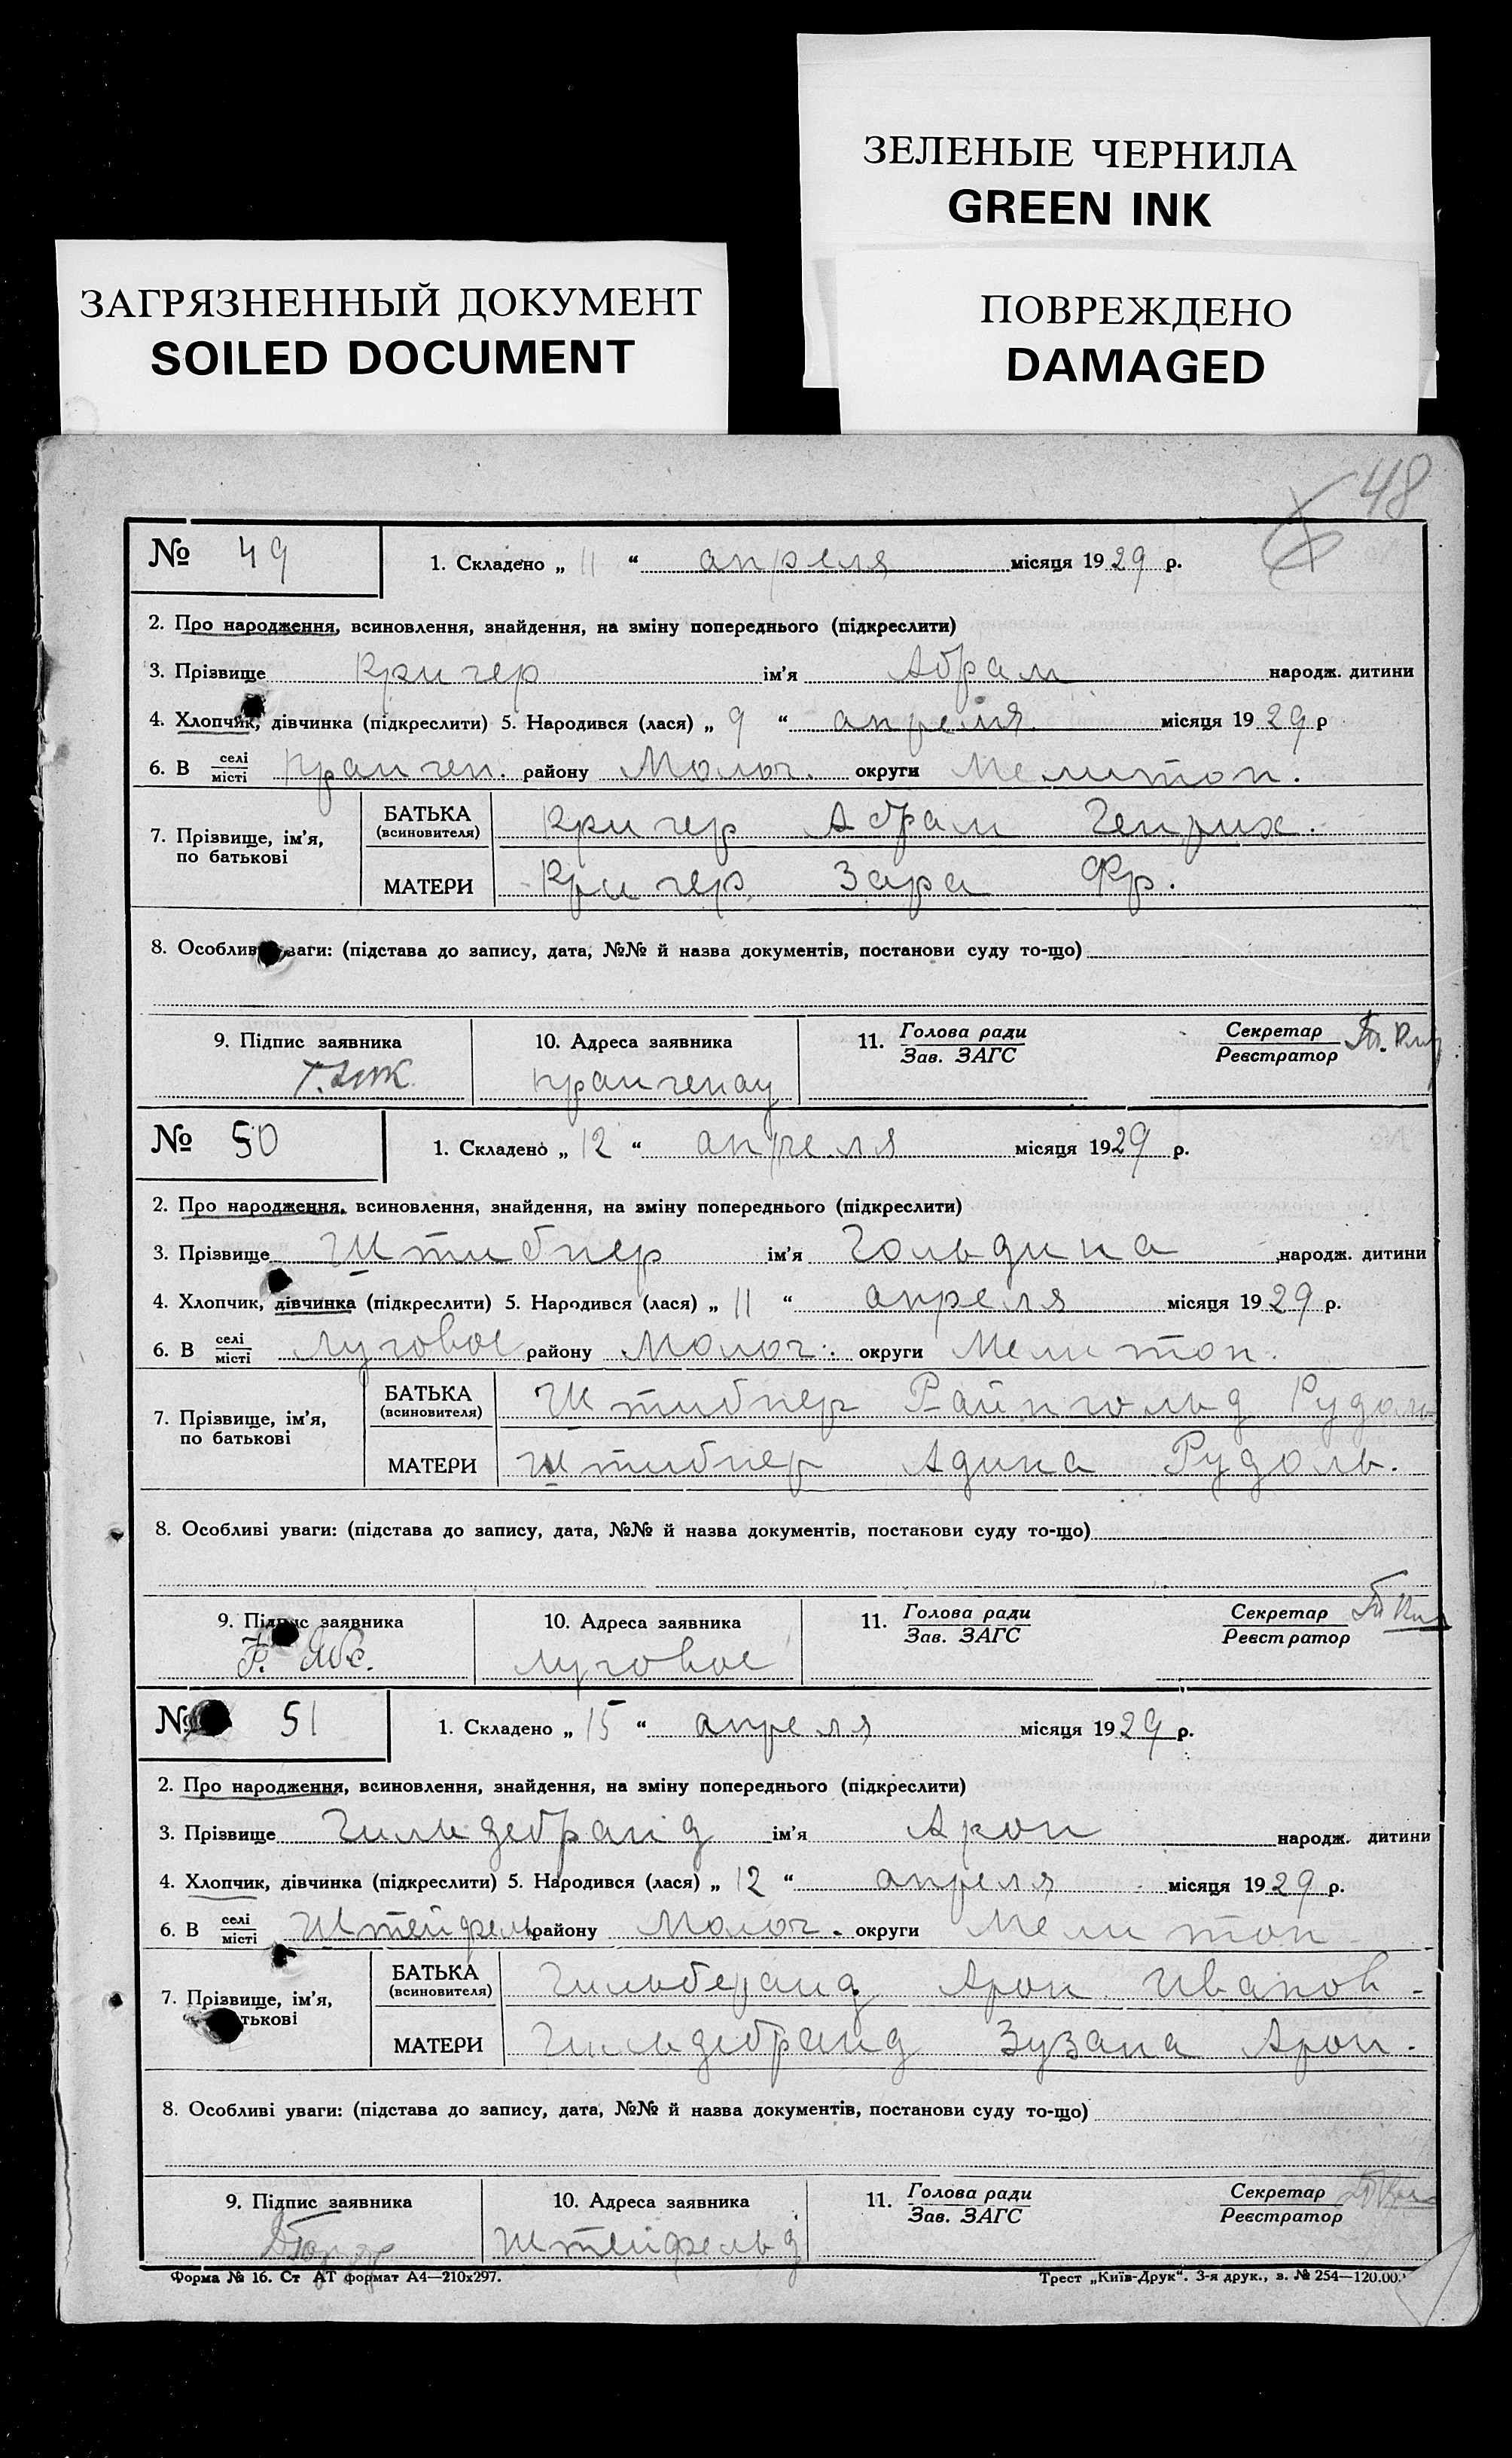 ЗЕЛЕНЫЕ ЧЕРНИЛА
GREEN INK
ЗАГРЯЗНЕННЫЙ ДОКУМЕНТ
SOILED DOCUMENT
ПОВРЕЖДЕНО
DAMAGED
48
№ 49 1. Складено „ 11 “ апреля місяця 1929 р.
2. Про народження, всиновлення, знайдення, на зміну попереднього (підкреслити)
3. Прізвище Кригер ім'я Абрам народж. дитини
4. Хлопчик, дівчинка (підкреслити) 5. Народився (лася) „ 9 “ апреля місяця 1929 р
6. В селі/місті Кранген. району Молоч. округи Мелитоп.
7. Прізвище, ім'я, по батькові
БАТЬКА (всиновителя) Кригер Абрам Генрих.
МАТЕРИ Кригер Зара Фр.
8. Особлив ваги: (підстава до запису, дата, №№ й назва документів, постанови суду то-що)
9. Підпис заявника 10. Адреса заявника 11. Голова ради/Зав. ЗАГС Секретар/Реєстратор
Крангенау
№ 50 1. Складено „ 12 “ апреля місяця 1929 р.
2. Про народження, всиновлення, знайдення, на зміну попереднього (підкреслити)
3. Прізвище Штибнер ім'я Гольдина народж. дитини
4. Хлопчик, дівчинка (підкреслити) 5. Народився (лася) „ 11 “ апреля місяця 1929 р.
6. В селі/місті Луговое району Молоч. округи Мелитоп.
7. Прізвище, ім'я, по батькові
БАТЬКА (всиновителя) Штибнер Райнгольд Рудоль
МАТЕРИ Штибнер Адина Рудоль.
8. Особливі уваги: (підстава до запису, дата, №№ й назва документів, постанови суду то-що)
9. Підпис заявника 10. Адреса заявника 11. Голова ради/Зав. ЗАГС Секретар/Реєстратор
Луговое
№ 51 1. Складено „ 15 “ апреля місяця 1929 р.
2. Про народження, всиновлення, знайдення, на зміну попереднього (підкреслити)
3. Прізвище Гильдебранд ім'я Арон народж. дитини
4. Хлопчик, дівчинка (підкреслити) 5. Народився (лася) „ 12 “ апреля місяця 1929 р.
6. В селі/місті Штейфель району Молоч. округи Мелитоп
7. Прізвище, ім'я, тькові
БАТЬКА (всиновителя) Арон Иванов
МАТЕРИ Гильдебранд Зузана Арон.
8. Особливі уваги: (підстава до запису, дата, №№ й назва документів, постанови суду то-що)
9. Підпис заявника 10. Адреса заявника 11. Голова ради/Зав. ЗАГС Секретар/Реєстратор
Штейфельд
Форма № 16. Ст АТ формат А4—210х297. Трест „Київ-Друк“. 3-я друк., з. № 254—120.00